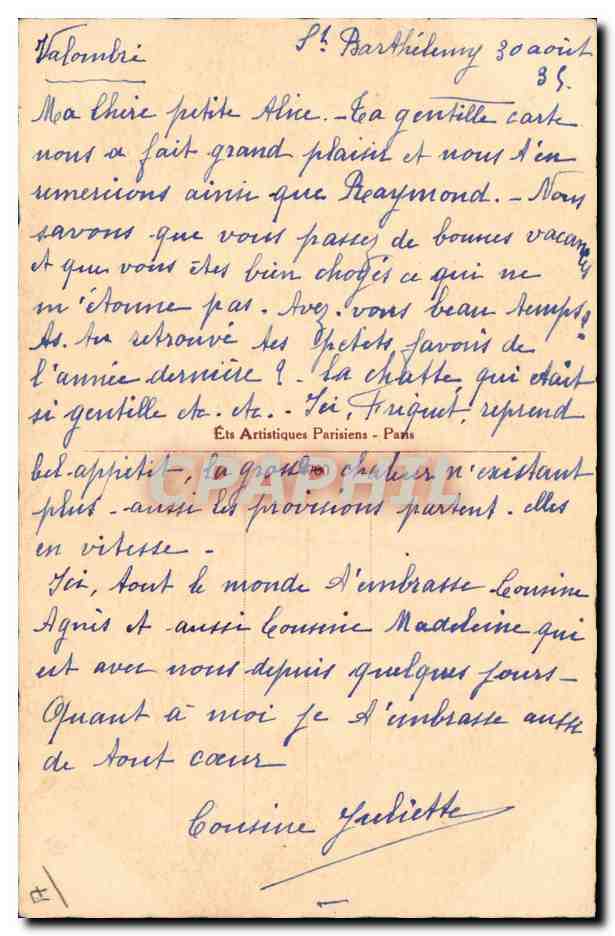 Valombré
St Barthélemy 30 août
35.
Ma chère petite Alice. - Ta gentille carte
nous a fait grand plaisir et nous t'en
remercions ainsi que Raymond. - Nous
savons que vous passez de bonnes vacances
et que vous êtes bien choyés ce qui ne
m'étonne pas. Avez-vous beau temps?
As-tu retrouvé tes "petits favoris de
l'année dernière? - la chatte, qui était
si gentille etc. etc. - Ici, Friquet, reprend
Éts Artistiques Parisiens - Paris
bel appétit, la grosse chaleur n'existant
CPAPHIL
plus - aussi les provisions partent-elles
en vitesse -
Ici, tout le monde t'embrasse Cousine
Agnès et aussi Cousine Madeleine qui
est avec nous depuis quelques jours -
Quant à moi je t'embrasse aussi
de tout cœur
Cousine Juliette